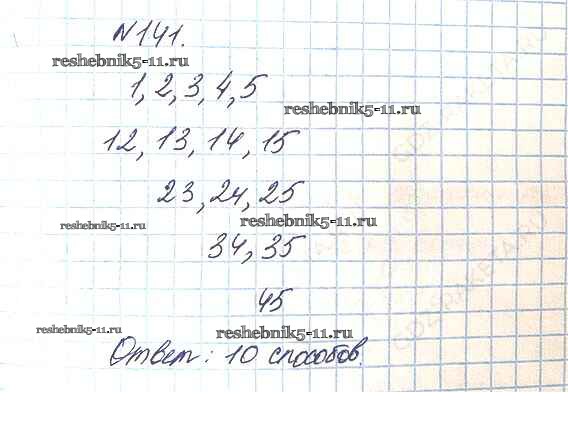 №141.
reshebnik5-11.ru
1, 2, 3, 4, 5
reshebnik5-11.ru
12, 13, 14, 15
23, 24, 25
reshebnik5-11.ru
reshebnik5-11.ru
34, 35
45
reshebnik5-11.ru
reshebnik5-11.ru
Ответ: 10 способов.